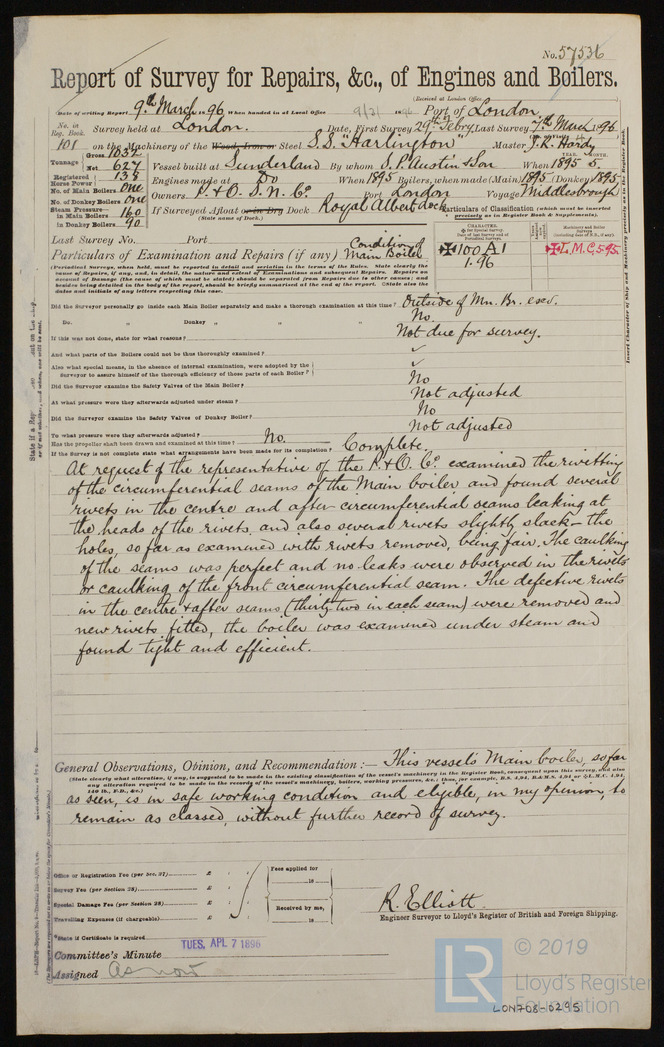 No. 57536
Report of Survey for Repairs, &c., of Engines and Boilers.
(Received at London Office
(Date of writing Report 9th March 1896 When handed in at Local Office 9/3/ 1896 Port of London
No. in Reg. Book. Survey held at London. Date, First Survey 29th Febry Last Survey 7th March 1896
(No. of Visits
101 on the Machinery of the Wood, Iron or Steel S.S. "Harlington" Master J.R. Hardy
Tonnage Gross 1032 Net 627
Vessel built at Sunderland By whom S.P. Austin & Son When 1895 5
YEAR. MONTH.
Registered Horse Power 138 Engines made at Do When 1895 Boilers, when made (Main) 1895 (Donkey) 1895
No. of Main Boilers One Owners P. & O. S. N. Co. Port London Voyage Middlesbrough
No. of Donkey Boilers One
Steam Pressure in Main Boilers 160 If Surveyed Afloat or in Dry Dock Royal Albert dock
in Donkey Boilers 90 (State name of Dock.)
Particulars of Classification (which must be inserted precisely as in Register Book & Supplements).
Last Survey No. Port
CHARACTER.
✠100 A1
1.96
✠L.M.C. 5.95
Particulars of Examination and Repairs (if any) Condition of Main Boiler
(Periodical Surveys, when held, must be reported in detail and seriatim in the terms of the Rules. State clearly the
cause of Repairs, if any, and, in detail, the nature and extent of Examinations and subsequent Repairs. Repairs on
account of Damage (the cause of which must be stated) should be separated from Repairs due to other causes; and
besides being detailed in the body of the report, should be briefly summarised at the end of the report. State also the
dates and initials of any letters respecting this case.
Did the Surveyor personally go inside each Main Boiler separately and make a thorough examination at this time? Outside of Mn. Br. exd.
Do. „ Donkey „ „ „ No.
If this was not done, state for what reasons? Not due for survey.
And what parts of the Boilers could not be thus thoroughly examined? ✓
Also what special means, in the absence of internal examination, were adopted by the
Surveyor to assure himself of the thorough efficiency of those parts of each Boiler? ✓
Did the Surveyor examine the Safety Valves of the Main Boiler? No
At what pressure were they afterwards adjusted under steam? Not adjusted
Did the Surveyor examine the Safety Valves of Donkey Boiler? No
To what pressure were they afterwards adjusted? Not adjusted
Has the propeller shaft been drawn and examined at this time? No.
If the Survey is not complete state what arrangements have been made for its completion? Complete.
At request of the representative of the P. & O. Co. examined the rivetting
of the circumferential seams of the Main boiler and found several
rivets in the centre and after circumferential seams leaking at
the heads of the rivets, and also several rivets slightly slack – the
holes, so far as examined with rivets removed, being fair. The caulking
of the seams was perfect and no leaks were observed in the rivets
or caulking of the front circumferential seam. The defective rivets
in the centre & after seams (thirty two in each seam) were removed and
new rivets fitted, the boiler was examined under steam and
found tight and efficient.
General Observations, Opinion, and Recommendation :— This vessel's Main boiler, so far
(State clearly what alteration, if any, is suggested to be made in the existing classification of the vessel's machinery in the Register Book, consequent upon this survey, and also
any alteration required to be made in the records of the vessel's machinery, boilers, working pressures, &c.; thus, for example, B.S. 4,94, B.&M.S. 4,94 or ✠L.M.C. 4,94,
140 lb., F.D., &c.)
as seen, is in safe working condition and eligible, in my opinion, to
remain as classed, without further record of survey.
Office or Registration Fee (per Sec. 27) £ : :
Survey Fee (per Section 28) £ : :
Special Damage Fee (per Section 28) £ : :
Travelling Expenses (if chargeable) £ : :
Fees applied for
18
Received by me,
18
R. Elliott.
Engineer Surveyor to Lloyd's Register of British and Foreign Shipping.
*State if Certificate is required
Committee's Minute TUES. APL. 7 1896
Assigned as now
LR
© 2019
Lloyd's Register
Foundation
LON706-0295